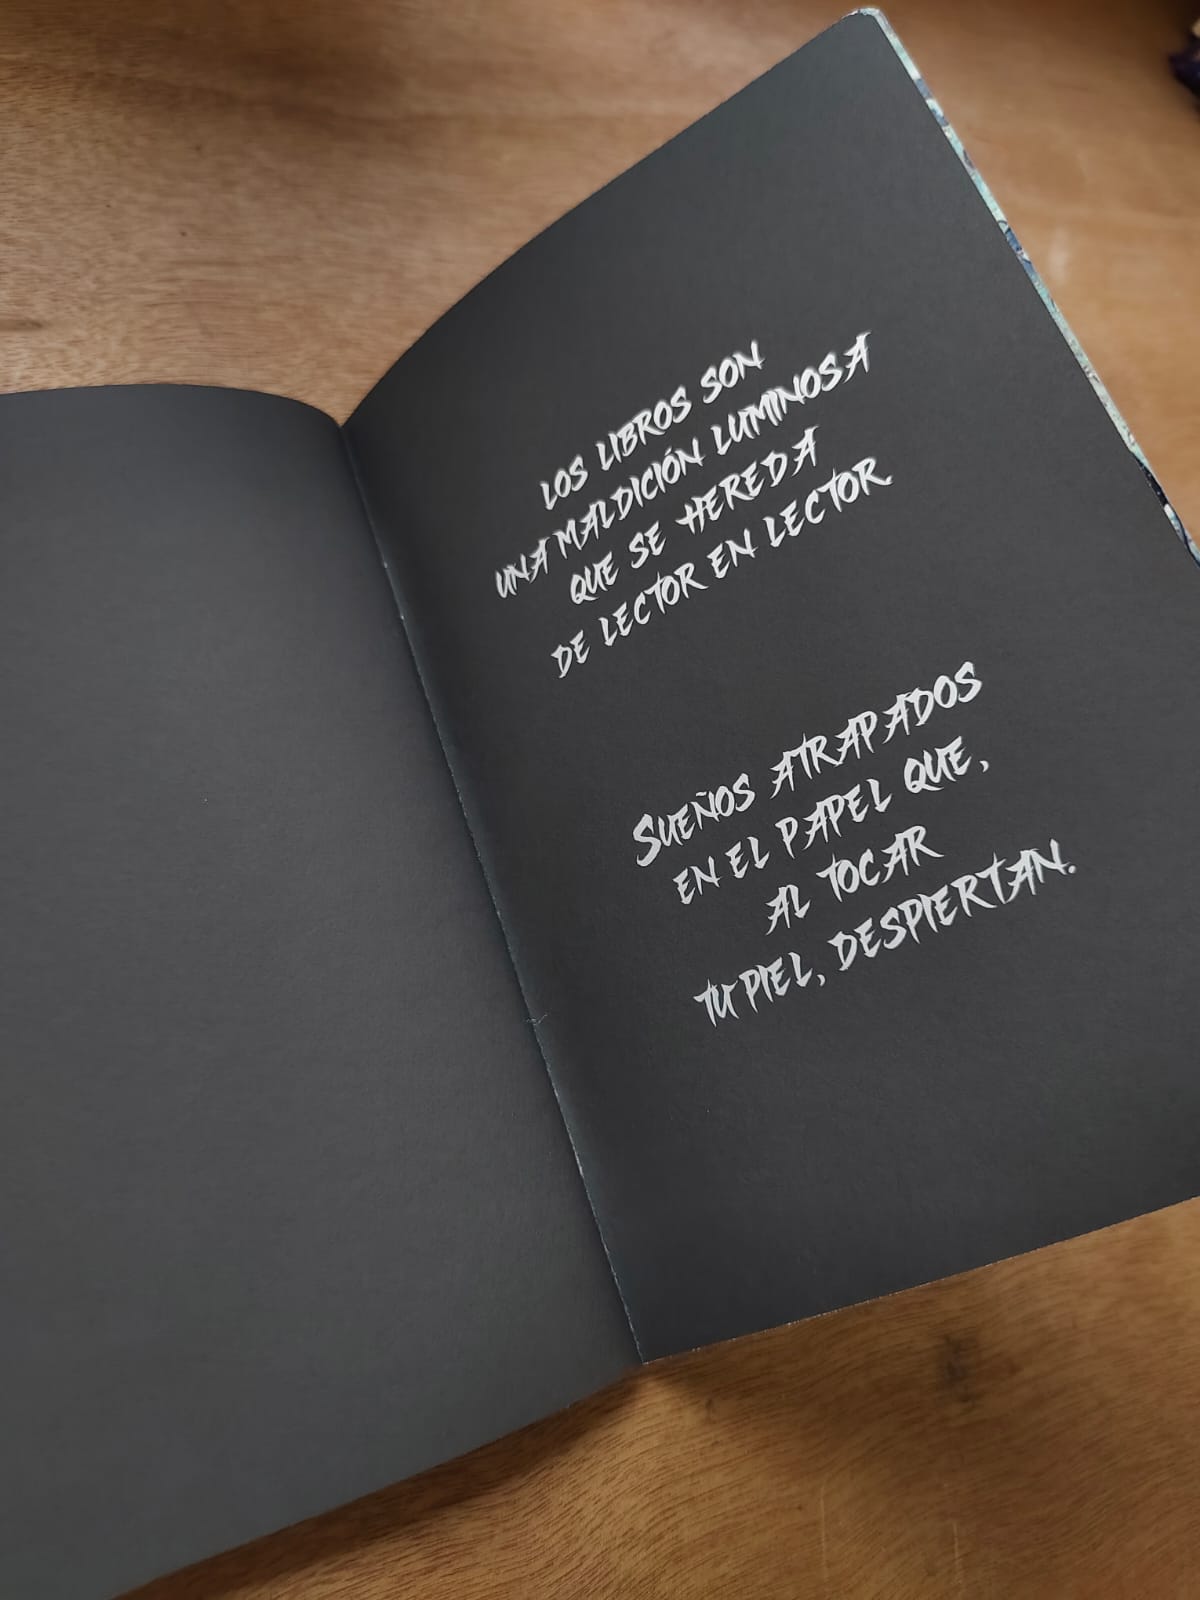 LOS LIBROS SON
UNA MALDICIÓN LUMINOSA
QUE SE HEREDA
DE LECTOR EN LECTOR
SUEÑOS ATRAPADOS
EN EL PAPEL QUE,
AL TOCAR
TU PIEL, DESPIERTAN.